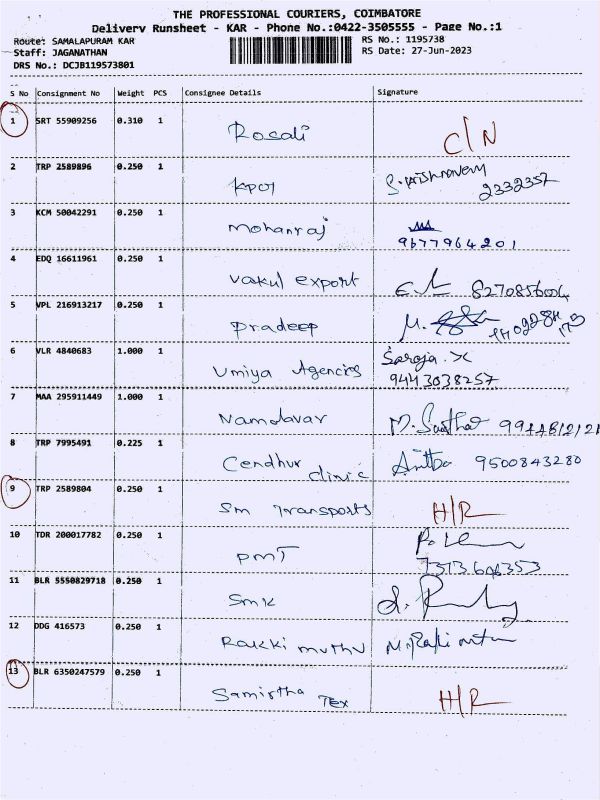 THE PROFESSIONAL COURIERS, COIMBATORE
Delivery Runsheet - KAR - Phone No.:0422-3505555 - Page No.:1
Route: SAMALAPURAM KAR RS No.: 1195738
Staff: JAGANATHAN RS Date: 27-Jun-2023
DRS No.: DCJB119573801
S No Consignment No Weight PCS Consignee Details Signature
1 SRT 55909256 0.310 1 Rosali C/N
2 TRP 2589896 0.250 1 KPOT 2332357
3 KCM 50042291 0.250 1 Mohanraj
9677964201
4 EDQ 16611961 0.250 1 Vakul export 8270856004
5 VPL 216913217 0.250 1 Pradeep
6 VLR 4840683 1.000 1 Umiya Agencies Saroja
9443038257
7 MAA 295911449 1.000 1 Namdavar
8 TRP 7995491 0.225 1 Cendhur clinic Anitha 9500843280
9 TRP 2589804 0.250 1 Sm Transports H/R
10 TDR 200017782 0.250 1 PMT
11 BLR 5550829718 0.250 1 SMK
12 DDG 416573 0.250 1 Rakki muthu
13 BLR 6350247579 0.250 1 Samistha Tex H/R